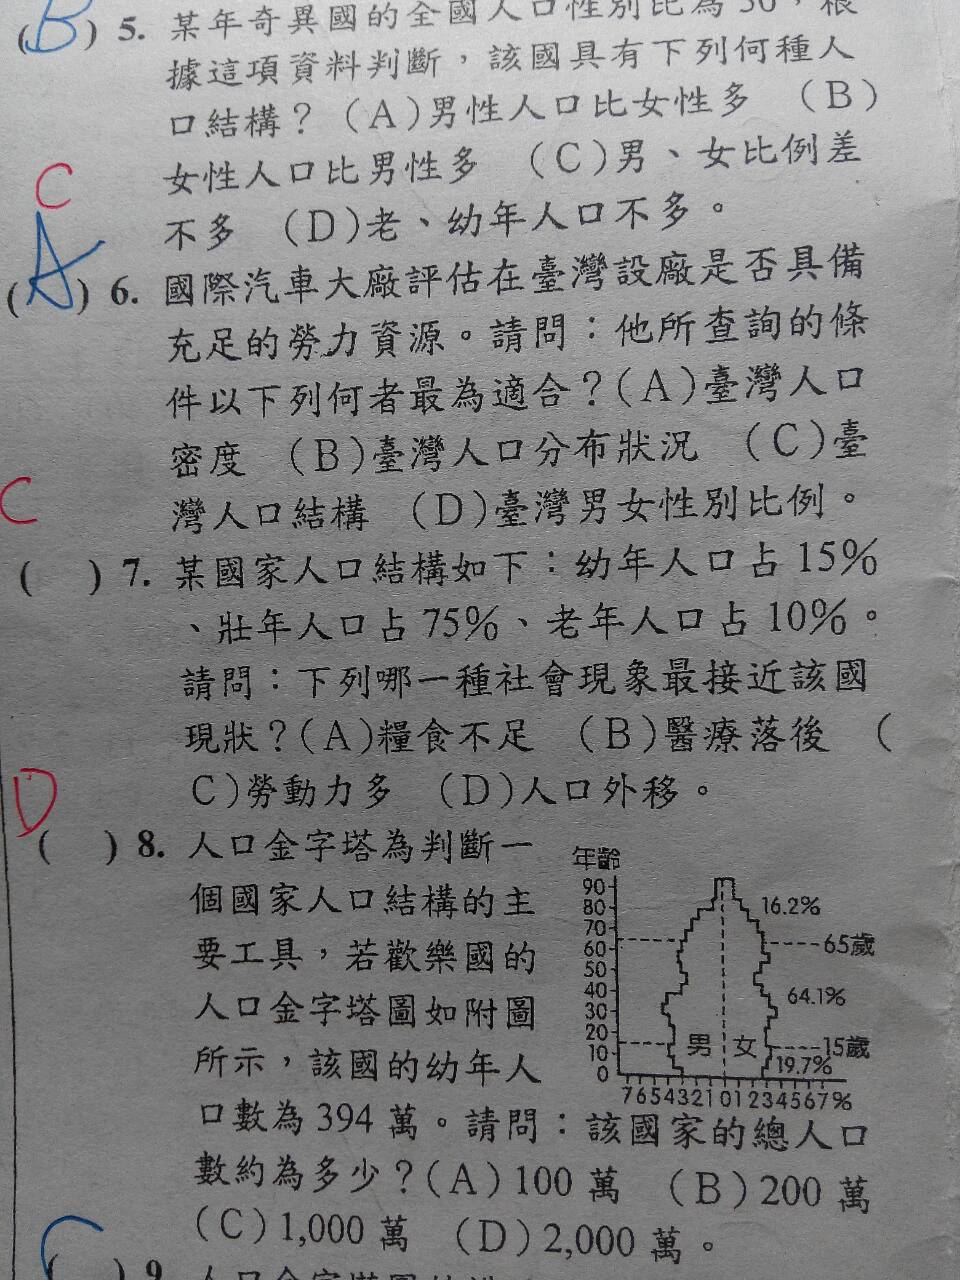 (B) 5. 某年奇異國的全國人口性別比為 50，根
據這項資料判斷，該國具有下列何種人
口結構？ (A)男性人口比女性多 (B)
女性人口比男性多 (C)男、女比例差
不多 (D)老、幼年人口不多。
C
(A) 6. 國際汽車大廠評估在臺灣設廠是否具備
充足的勞力資源。請問：他所查詢的條
件以下列何者最為適合？(A)臺灣人口
密度 (B)臺灣人口分布狀況 (C)臺
灣人口結構 (D)臺灣男女性別比例。
C
( ) 7. 某國家人口結構如下：幼年人口占 15%
、壯年人口占 75%、老年人口占 10%。
請問：下列哪一種社會現象最接近該國
現狀？(A)糧食不足 (B)醫療落後 (
C)勞動力多 (D)人口外移。
D
( ) 8. 人口金字塔為判斷一
個國家人口結構的主
要工具，若歡樂國的
人口金字塔圖如附圖
所示，該國的幼年人
口數為 394 萬。請問：該國家的總人口
數約為多少？(A)100 萬 (B)200 萬
(C)1,000 萬 (D)2,000 萬。
年齡
90
80
70
60
50
40
30
20
10
0
16.2%
65歲
64.1%
男 女
15歲
19.7%
765432101234567%
( ) 9.